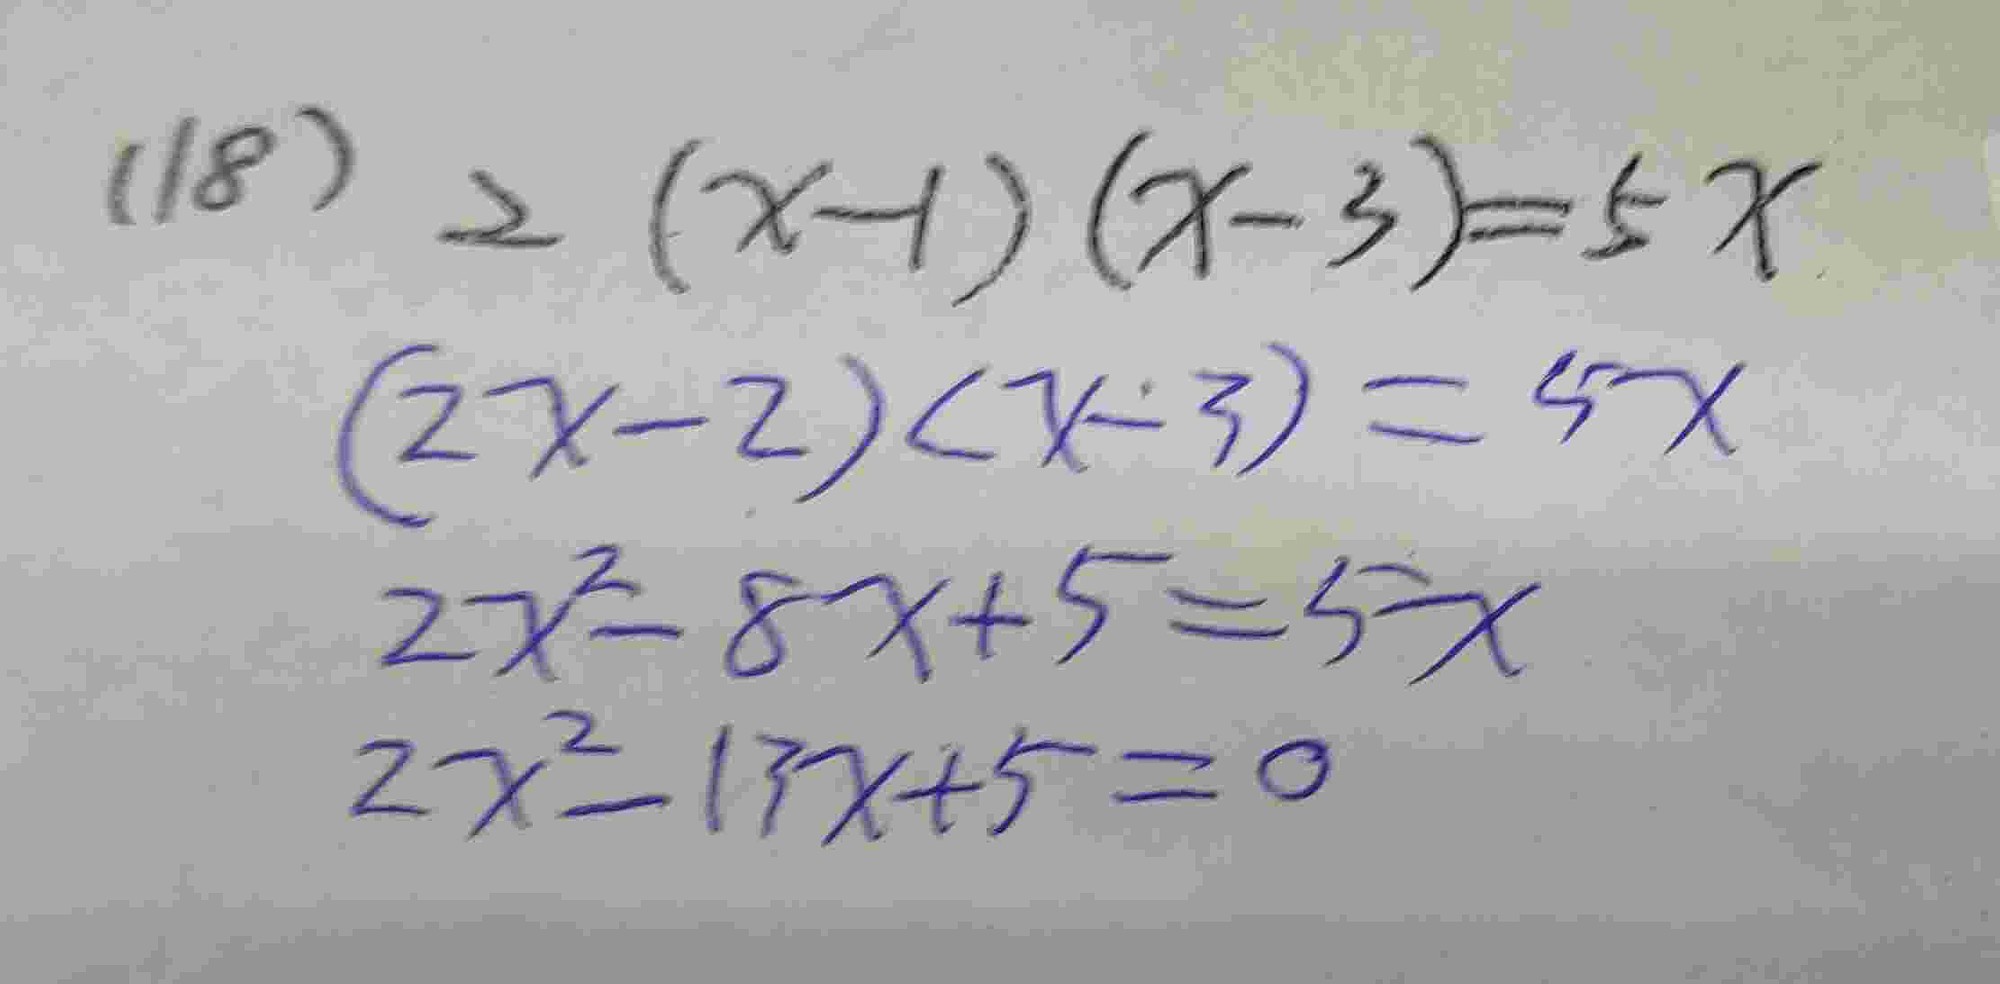 (18) 2 (x-1) (x-3)=5x
(2x-2)(x-3)=5x
2x²-8x+5=5x
2x²-13x+5=0